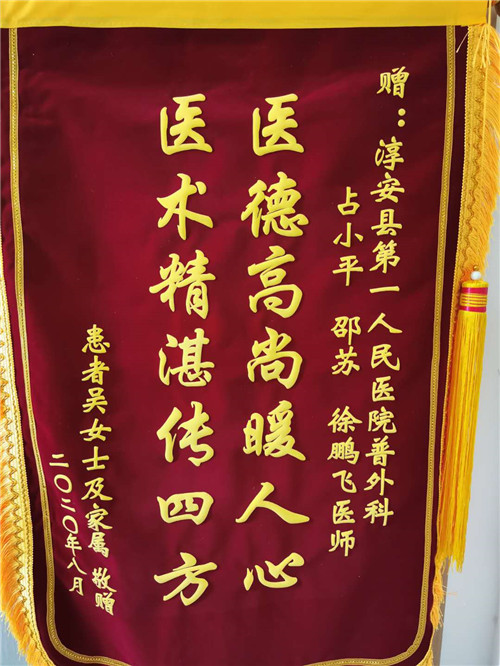 赠：淳安县第一人民医院普外科
占小平 邵苏 徐鹏飞医师
医德高尚暖人心
医术精湛传四方
患者吴女士及家属 敬赠
二〇二〇年八月